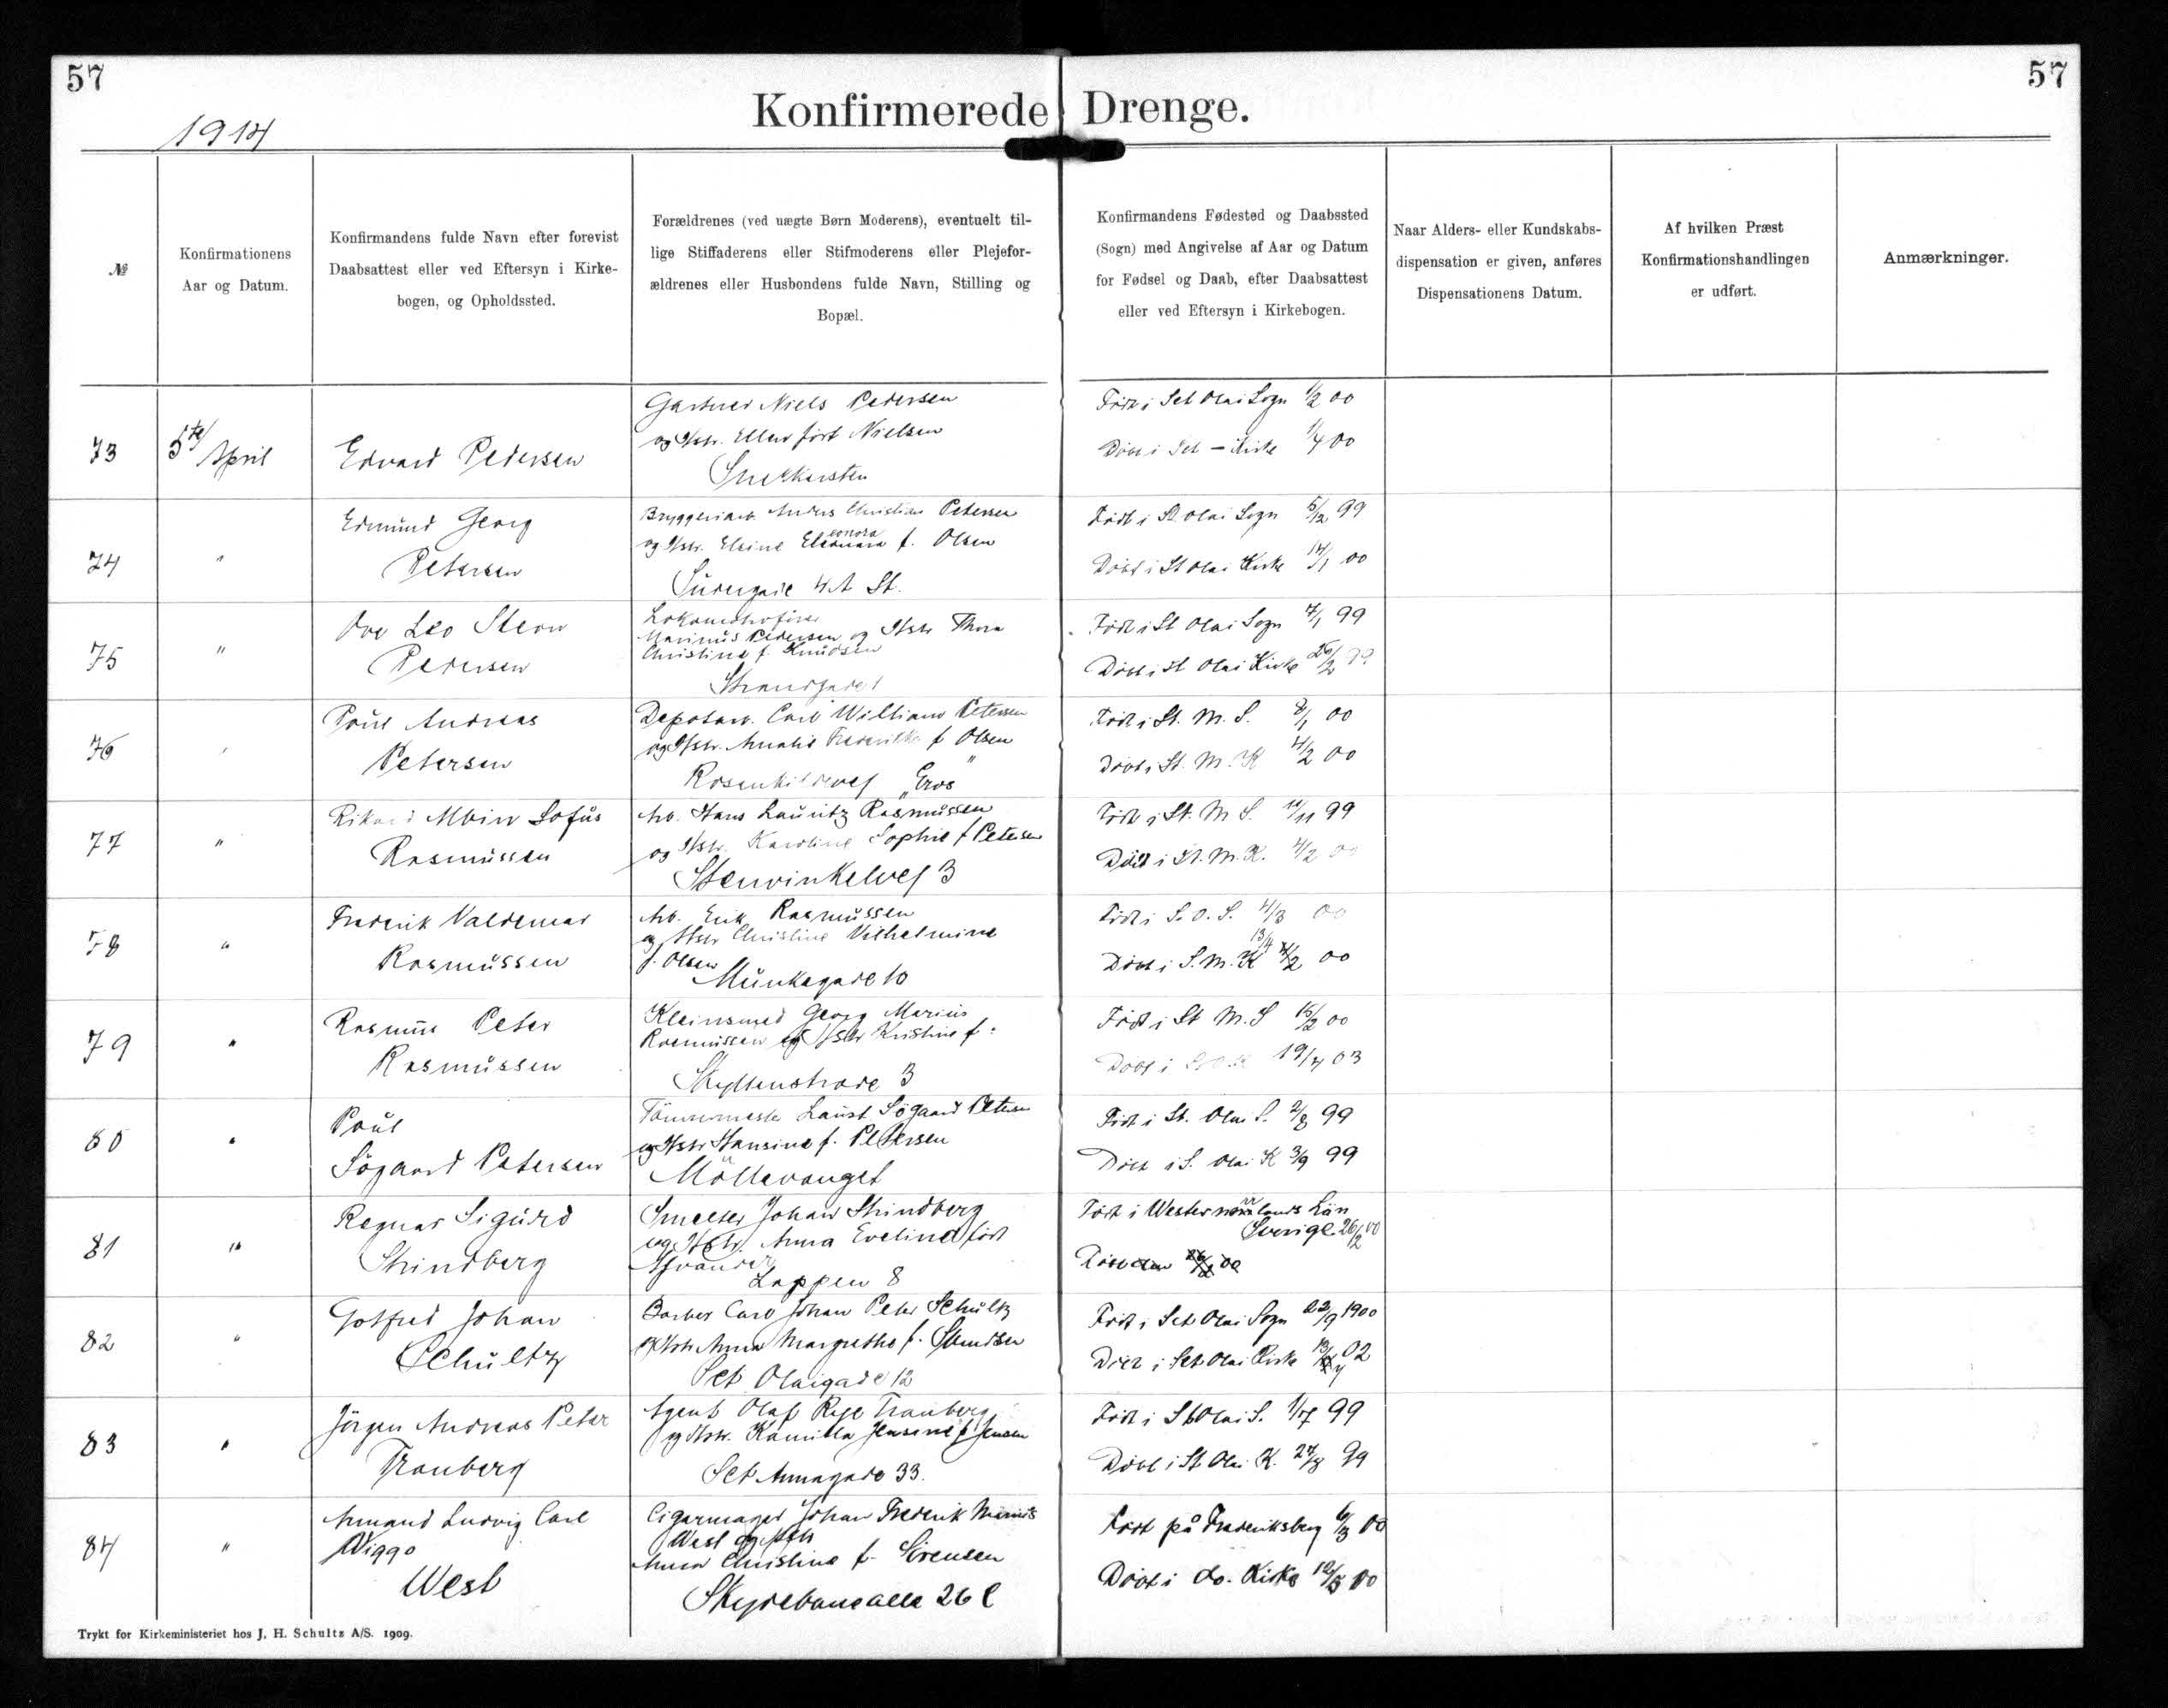 57
57
1914
Konfirmerede Drenge.
№
Konfirmationens
Aar og Datum.
Konfirmandens fulde Navn efter forevist
Daabsattest eller ved Eftersyn i Kirke-
bogen, og Opholdssted.
Forældrenes (ved uægte Børn Moderens), eventuelt til-
lige Stiffaderens eller Stifmoderens eller Plejefor-
ældrenes eller Husbondens fulde Navn, Stilling og
Bopæl.
Konfirmandens Fødested og Daabssted
(Sogn) med Angivelse af Aar og Datum
for Fødsel og Daab, efter Daabsattest
eller ved Eftersyn i Kirkebogen.
Naar Alders- eller Kundskabs-
dispensation er given, anføres
Dispensationens Datum.
Af hvilken Præst
Konfirmationshandlingen
er udført.
Anmærkninger.
73
5te/ April
Edvard Pedersen
Gartner Niels Pedersen
og Hstr. Ellen født Nielsen
Snekkersten
Født i Sct Olai Sogn 1/2 00
Døbt i Sct - Kirke 1/4 00
74
"
Edmund Georg
Petersen
Bryggeriarb. Anders Christian Petersen
og Hstr. Elsine Eleonora f. Olsen
Südergade 4A St.
Født i St Olai Sogn 5/12 99
Døbt i St Olai Kirke 14/1 00
75
"
Ove Leo Stern
Pedersen
Lokomotivfører
Marinus Pedersen og Hstr Thora
Christine f. Knudsen
Strandgade 1
Født i St Olai Sogn 7/1 99
Døbt i St Olai Kirke 26/2
76
Poul Andreas
Petersen
Depotarb. Carl William Petersen
og Hstr. Amalie Frederikke f Olsen
Rosenkildevej „Eros"
Født i St. M. S. 8/1 00
Døbt i St. M. K 4/2 00
77
"
Rikard Albin Sofus
Rasmussen
Arb. Hans Lauritz Rasmussen
og Hstr. Karoline Sophie f Petersen
Stenvinkelvej 3
Født i St. M S. 11/11 99
Døbt i St. M. K. 4/2 00
78
"
Frederik Valdemar
Rasmussen
Arb. Erik Rasmussen
og Hstr Christine Vilhelmine
f. Olsen
Munkegade 10
Født i S. O. S. 4/3 00
13/4
Døbt i S. M. K 00
79
"
Rasmus Peter
Rasmussen
Kleinsmed Georg Marius
Rasmussen og Hstr Kristine f:
Skyttenstræde 3
Født i St M. S 15/2 00
Døbt i 19/4 03
80
"
Poul
Søgaard Petersen
Tømmermester Laust Søgaard Petersen
og Hstr Hansine f. Petersen
Möllevanget
Født i St. Olai S. 2/8 99
Døbt i S. Olai K 3/9 99
81
"
Regnar Sigurd
Strindberg
Smelter Johan Strindberg
og Hstr. Anna Eveline født
Lappen 8
Født i Westernorrlands Län
Sverige 26/2 00
82
"
Gotfred Johan
Schultz
Barber Carl Johan Peter Schultz
og Hstr Anna Margrethe f.
Sct Olaigade 12
Født i Sct Olai Sogn 23/9 1900
Døbt i Sct Olai Kirke 13/4 02
83
"
Jörgen Andreas Peter
Tranberg
Agent Olaf Rye Tranberg
og Hstr. Kamilla Jensine f Jensen
Sct Annagade 33.
Født i St Olai S. 1/7 99
Døbt i St Olai K. 27/8 99
84
"
Armand Ludvig Carl
Viggo
West
Cigarmager Johan Frederik Marius
West og Hstr
Anna Christine f. Sörensen
Skydebaneallé 26 C
Født på Frederiksberg 6/3 00
Døbt i do. Kirke 10/5 00
Trykt for Kirkeministeriet hos J. H. Schultz A/S. 1909.